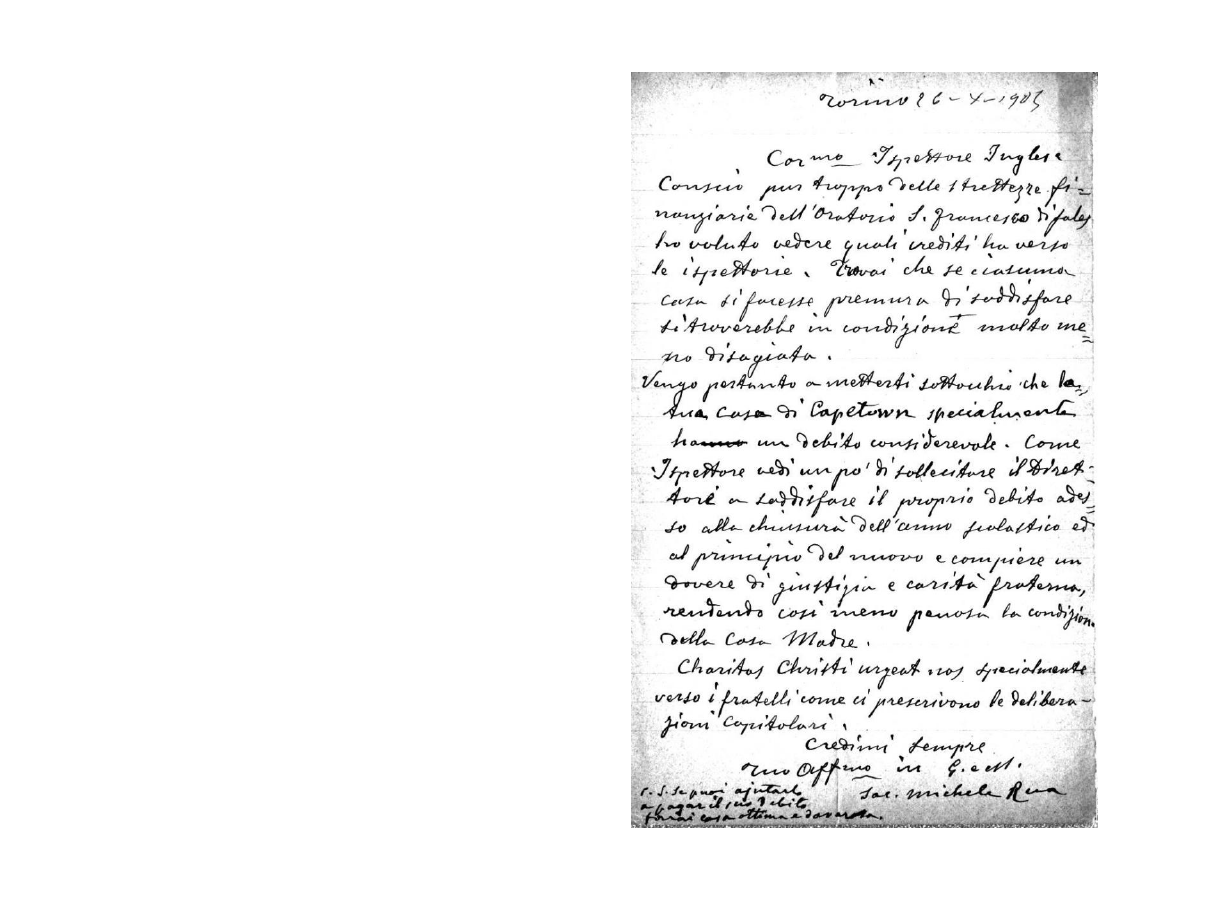 Torino 26-X-1905
Carmo Ispettore Inglese
Conscio pur troppo delle strettezze fi=
nanziarie dell'Oratorio S. Francesco di Sales
ho voluto vedere quali crediti ha verso
le ispettorie. Trovai che se ciascuna
casa si facesse premura di soddisfare
si troverebbe in condizione molto me=
no disagiata.
Vengo pertanto a metterti sottocchio che la=
tua casa di Capetown specialmente
ha un debito considerevole. Come
Ispettore vedi un po' di sollecitare il Diret-
tore a soddisfare il proprio debito ades=
so alla chiusura dell'anno scolastico ed
al principio del nuovo e compiere un
dovere di giustizia e carità fraterna,
rendendo così meno penosa la condizion
della Casa Madre.
Charitas Christi urgeat nos specialmente
verso i fratelli come ci prescrivono le delibera-
zioni Capitolari.
Credimi sempre
Tuo Affmo in G. e M.
Sac. Michele Rua
P. S. Se puoi ajutarlo
a pagar il suo debito
farai cosa ottima e doverosa.